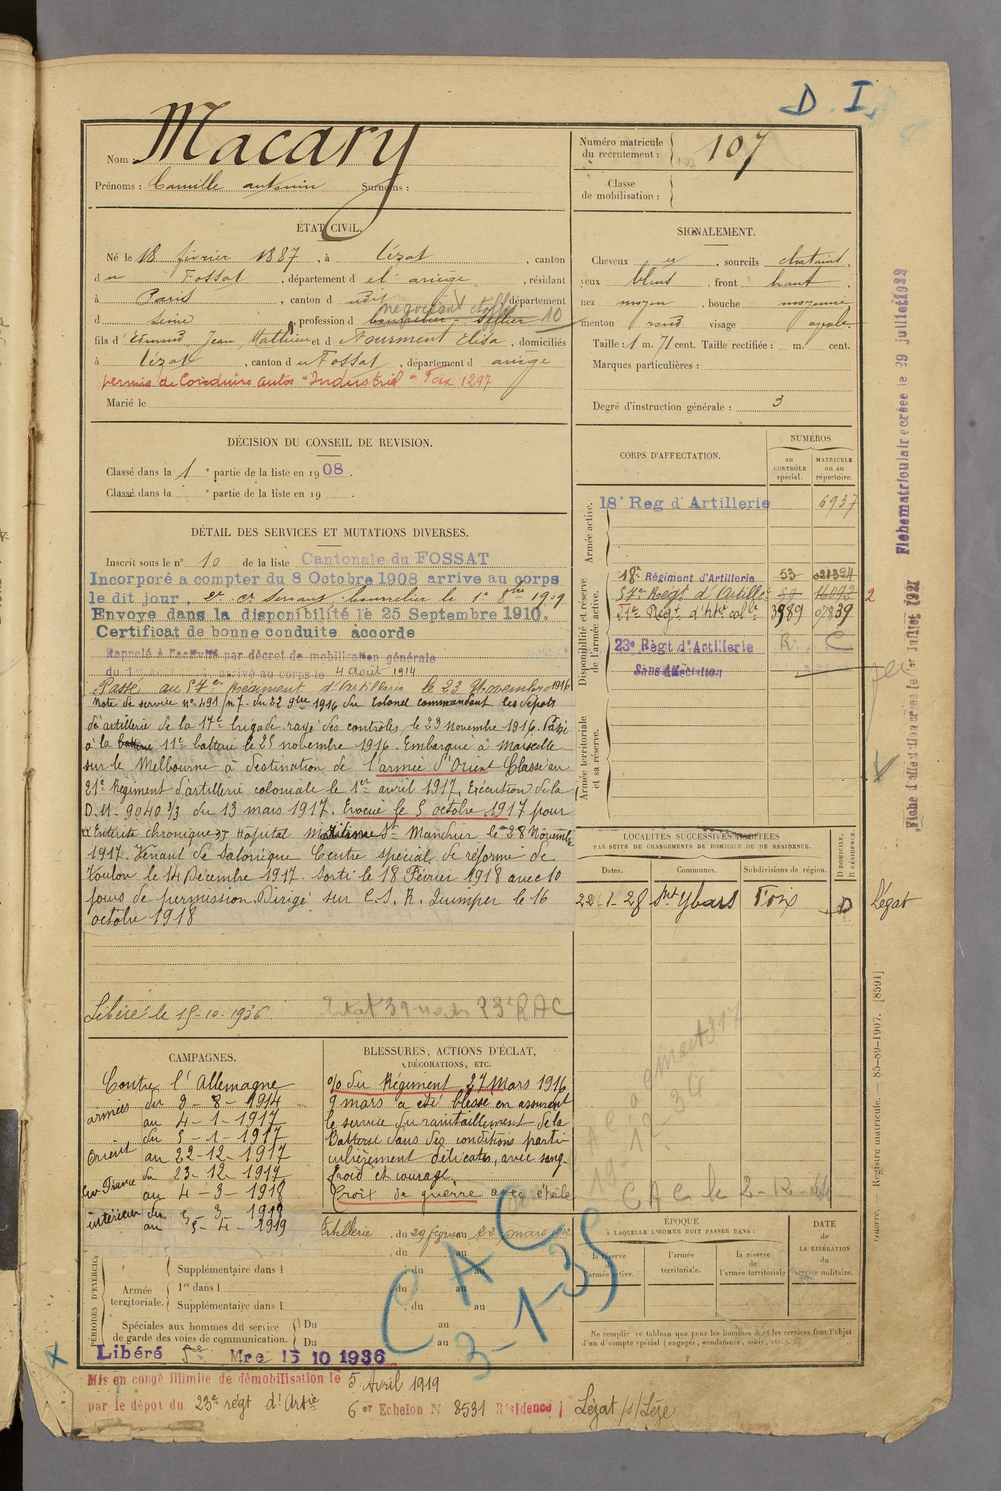 D. I.
Nom Macary
Prénoms : Camille antonin Surnoms :
Numéro matricule du recrutement : 107
Classe de mobilisation :
ÉTAT CIVIL.
Né le 18 février 1887, à Lézat, canton
du Fossat, département d e l'ariège, résidant
à Paris, canton d udt, département
négociant
d Seine, profession d bourrelier sellier 10
fils d'Edmond Jean Mathieu et d Fourment Elisa, domiciliés
à Lézat, canton du Fossat, département d ariège
permis de Conduire autos "Industriel" Foix 1297
Marié le
SIGNALEMENT.
Cheveux, sourcils chatains,
yeux bleus, front haut,
nez moyen, bouche moyenne,
menton rond visage ovale
Taille : 1 m. 71 cent. Taille rectifiée : m. cent.
Marques particulières :
Degré d'instruction générale : 3
DÉCISION DU CONSEIL DE REVISION.
Classé dans la 1e partie de la liste en 1908.
Classé dans la e partie de la liste en 19 .
DÉTAIL DES SERVICES ET MUTATIONS DIVERSES.
Inscrit sous le n° 10 de la liste Cantonale du FOSSAT
Incorporé a compter du 8 Octobre 1908 arrive au corps
le dit jour, et cr servant bourrelier le 1er 8bre 1909
Envoye dans la disponibilité le 25 Septembre 1910.
Certificat de bonne conduite accorde
Rappelé à l'activité par décret de mobilisation générale
du 1er arrivé au corps le 4 août 1914
Passé au 57e Régiment d'artillerie le 23 Novembre 1916
Note de service n° 491/n 7. du 22 9bre 1916 du Colonel commandant les dépots
d'artillerie de la 17e brigade. rayé des contrôles le 23 novembre 1916. Passé
à la batterie 11e batterie le 25 novembre 1916. Embarqué à Marseille
sur le Melbourne à destination de l'armée d'Orient Classé au
21e Régiment d'artillerie coloniale le 1er avril 1917. Exécution de la
D.M. 9040 2/3 du 13 mars 1917. Evacué le 5 octobre 1917 pour
Entérite chronique Hôpital Maritime St Mandrier le 28 Novembre
1917. Venant de Salonique Centre spécial de réforme de
Toulon le 14 Décembre 1917. Sorti le 18 Février 1918 avec 10
jours de permission. Dirigé sur C.S.R. Quimper le 16
octobre 1918
Libéré le 15-10-1936
CORPS D'AFFECTATION.
NUMÉROS
au CONTRÔLE spécial.
MATRICULE ou au répertoire.
Armée active.
18e Reg d'Artillerie 6937
Disponibilité et réserve de l'armée active.
18e Régiment d'Artillerie 53 021394
57e Régt d'Artillie 2
Régt d'Arte colle 3989 07839
23e Règt d'Artillerie R. C
Sans affectation
Armée territoriale et sa réserve.
LOCALITÉS SUCCESSIVES HABITÉES
PAR SUITE DE CHANGEMENTS DE DOMICILE OU DE RÉSIDENCE.
Dates. Communes. Subdivisions de région. D DOMICILE. R RÉSIDENCE.
22-1-28 St Ybars Foix D Lézat
CAMPAGNES.
Contre l'Allemagne
armées du 8-8-1914
au 4-1-1917
Orient du 5-1-1917
au 22-12-1917
en France du 23-12-1917
au 4-3-1918
intérieur du 5-3-1918
au 5-4-1919
BLESSURES, ACTIONS D'ÉCLAT,
DÉCORATIONS, ETC.
O/o du Régiment 27 Mars 1916
9 mars a été blessé en assurant
le service du ravitaillement de la
Batterie dans des conditions parti
culièrement délicates, avec sang-
froid et courage
Croix de guerre avec étoile
CAC le 2-12-
CAC
3-1-35
PÉRIODES D'EXERCICES
Artillerie, du au
du au
Armée territoriale.
Supplémentaire dans l du au
1re dans l du au
Supplémentaire dans l du au
Spéciales aux hommes du service de garde des voies de communication.
Du au
Du au
Libéré Mre 15 10 1936
ÉPOQUE
À LAQUELLE L'HOMME DOIT PASSER DANS :
la réserve de l'armée active.
l'armée territoriale.
la réserve de l'armée territoriale
DATE de LA LIBÉRATION du service militaire.
Ne remplir ce tableau que pour les hommes dont les services font l'objet
d'un décompte spécial (engagés, condamnés, omis, etc.)
Mis en congé illimité de démobilisation le 5 Avril 1919
par le dépot du 23e régt d'Artie
6er Echelon N° 8531 Résidence Lézat /s/ Lèze
Fiche matriculaire créée le 29 juillet 1922
Fiche d'affectation créée le 1er Juillet 1921
Guerre. Registre matricule. — 85-89-1907. [8591]